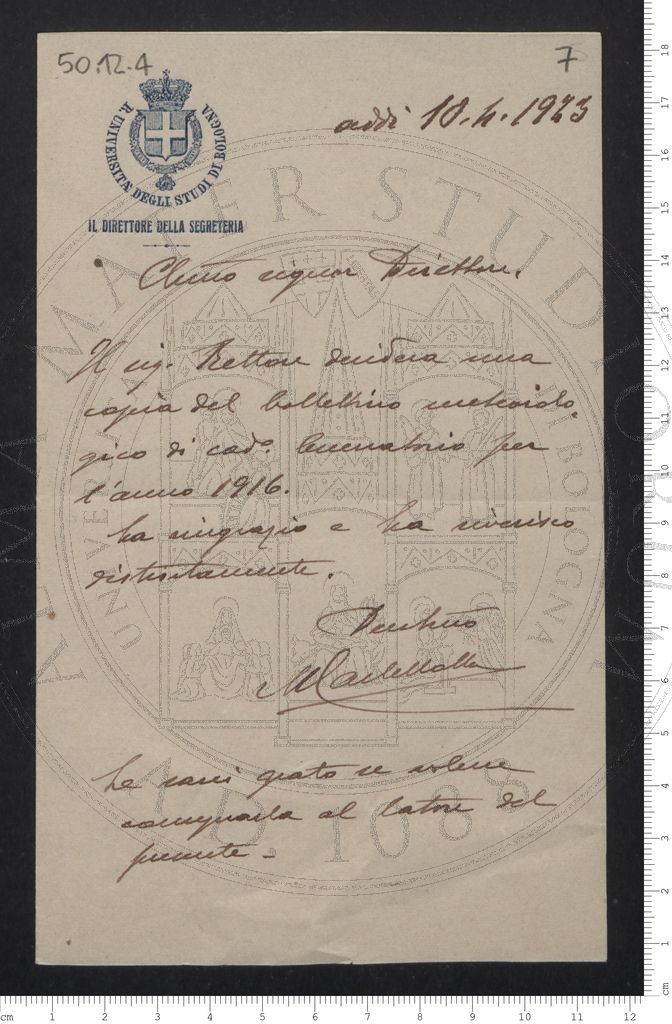 50.12.4
7
R. UNIVERSITÀ DEGLI STUDI DI BOLOGNA
IL DIRETTORE DELLA SEGRETERIA
addì 10.4.1923
Ch.mo signor Direttore,
Il sig. Rettore desidera una
copia del bollettino meteorolo-
gico di cod.o Osservatorio per
l'anno 1916.
La ringrazio e La riverisco
distintamente.
Dev.mo
Le sarei grato se volesse
consegnarla al latore del
presente -
ALMA MATER STUDIORUM
UNIVERSITÀ DI BOLOGNA
A.D. 1088